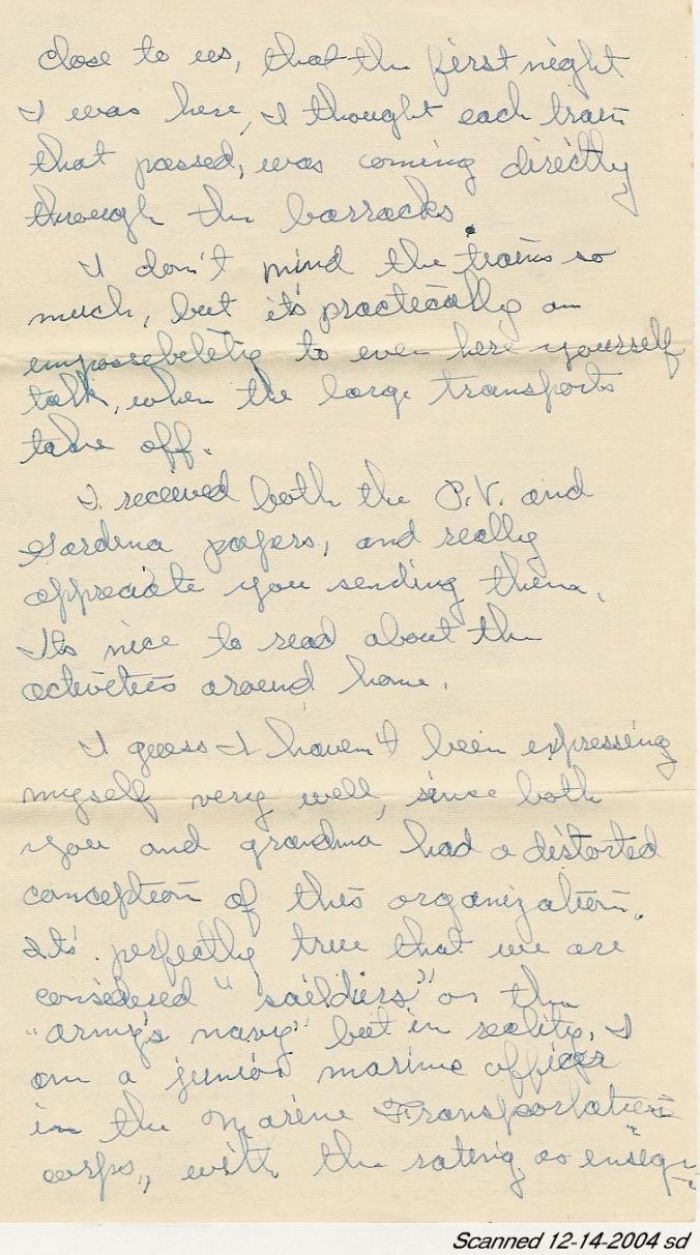 close to us, that the first night
I was here, I thought each train
that passed, was coming directly
through the barracks.
I don't mind the trains so
much, but its practically an
impossebility to even hear yourself
talk, when the large transports
take off.
I received both the P.V. and
Gardena papers, and really
appreciate you sending them.
Its nice to read about the
activities around home.
I guess I haven't been expressing
myself very well, since both
you and grandma had a distorted
conception of this organization.
Its perfectly true that we are
considered "saildiers" or the
"army's navy" but in reality, I
am a junior marine officer
in the Marine Transportation
corps, with the rating as ensign
Scanned 12-14-2004 sd